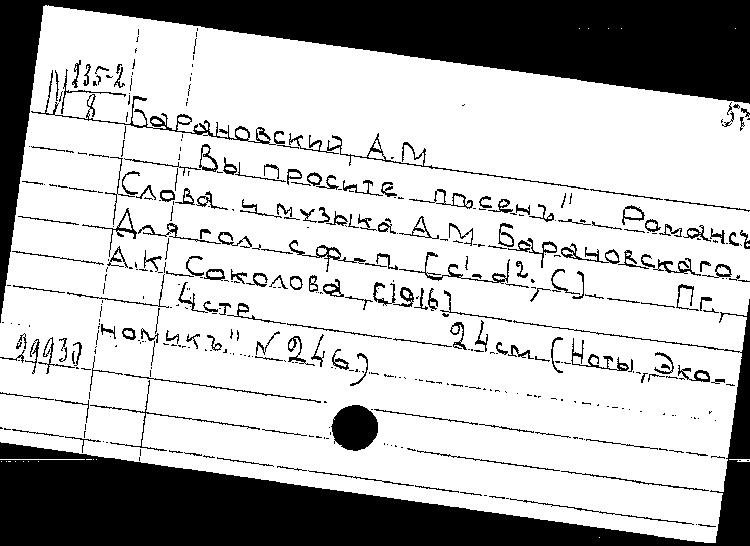 М 235-2
8
57
Барановский, А.М.
"Вы просите пѣсенъ"... Романсъ
Слова и музыка А.М. Барановскаго.
Для гол. с ф.-п. [c¹-d²; C] Пг.,
А.К. Соколова, [1916]
4 стр. 24 см. (Ноты „Эко-
номикъ" N 246)
29930